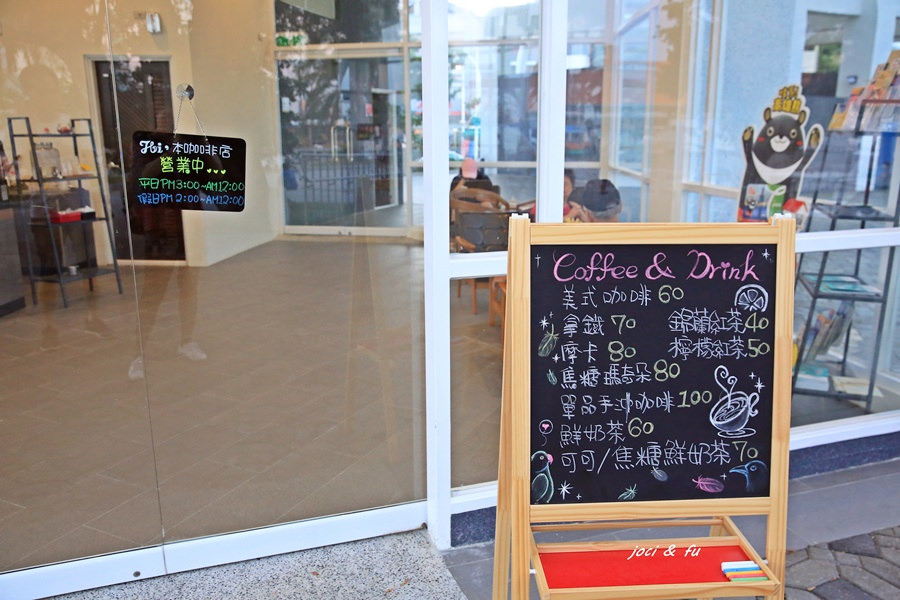 Hi, 本咖啡店
營業中
平日PM3:00~AM12:00
假日PM2:00~AM12:00
Coffee & Drink
美式咖啡60
拿鐵70
摩卡80
焦糖瑪奇朵80
單品手沖咖啡100
鮮奶茶60
可可/焦糖鮮奶茶70
錫蘭紅茶40
檸檬紅茶50
joci & fu